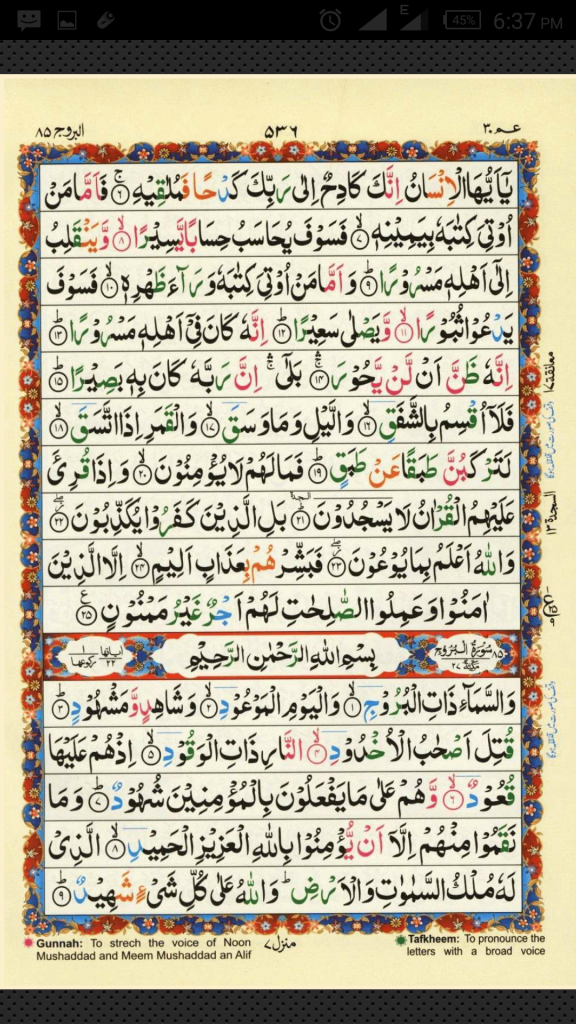 E 45% 6:37 PM
عـم ٣٠ ٥٣٦ البروج ٨٥
يٰۤاَيُّهَا الْاِنْسَانُ اِنَّكَ كَادِحٌ اِلٰى رَبِّكَ كَدْحًا فَمُلٰقِيْهِۚ‏﴿۶﴾ فَاَمَّا مَنْ
اُوْتِىَ كِتٰبَهٗ بِيَمِيْنِهٖۙ‏﴿۷﴾ فَسَوْفَ يُحَاسَبُ حِسَابًا يَّسِيْرًاۙ‏﴿۸﴾ وَّيَنْقَلِبُ
اِلٰٓى اَهْلِهٖ مَسْرُوْرًاؕ‏﴿۹﴾ وَاَمَّا مَنْ اُوْتِىَ كِتٰبَهٗ وَرَآءَ ظَهْرِهٖۙ‏﴿۱۰﴾ فَسَوْفَ
يَدْعُوْا ثُبُوْرًاۙ‏﴿۱۱﴾ وَّيَصْلٰى سَعِيْرًاؕ‏﴿۱۲﴾ اِنَّهٗ كَانَ فِىْۤ اَهْلِهٖ مَسْرُوْرًاؕ‏﴿۱۳﴾
اِنَّهٗ ظَنَّ اَنْ لَّنْ يَّحُوْرَۛۚ‏﴿۱۴﴾ بَلٰٓىۛۚ اِنَّ رَبَّهٗ كَانَ بِهٖ بَصِيْرًاؕ‏﴿۱۵﴾
فَلَاۤ اُقْسِمُ بِالشَّفَقِۙ‏﴿۱۶﴾ وَالَّيْلِ وَمَا وَسَقَۙ‏﴿۱۷﴾ وَالْقَمَرِ اِذَا اتَّسَقَۙ‏﴿۱۸﴾
لَتَرْكَبُنَّ طَبَقًا عَنْ طَبَقٍؕ‏﴿۱۹﴾ فَمَا لَهُمْ لَا يُؤْمِنُوْنَۙ‏﴿۲۰﴾ وَاِذَا قُرِئَ
عَلَيْهِمُ الْقُرْاٰنُ لَا يَسْجُدُوْنَ ؕ‏﴿۲۱﴾ بَلِ الَّذِيْنَ كَفَرُوْا يُكَذِّبُوْنَ ۖ‏﴿۲۲﴾
وَاللّٰهُ اَعْلَمُ بِمَا يُوْعُوْنَ ۖ‏﴿۲۳﴾ فَبَشِّرْهُمْ بِعَذَابٍ اَلِيْمٍۙ‏﴿۲۴﴾ اِلَّا الَّذِيْنَ
اٰمَنُوْا وَعَمِلُوا الصّٰلِحٰتِ لَهُمْ اَجْرٌ غَيْرُ مَمْنُوْنٍ‏﴿۲۵﴾
٨٥ سُوْرَةُ الْبُرُوْجِ مَكِّيَّةٌ ٢٧ بِسْمِ اللّٰهِ الرَّحْمٰنِ الرَّحِيْمِ اٰيَاتُهَا ٢٢ رُكُوْعُهَا ١
وَالسَّمَآءِ ذَاتِ الْبُرُوْجِۙ‏﴿۱﴾ وَالْيَوْمِ الْمَوْعُوْدِۙ‏﴿۲﴾ وَشَاهِدٍ وَّمَشْهُوْدٍؕ‏﴿۳﴾
قُتِلَ اَصْحٰبُ الْاُخْدُوْدِۙ‏﴿۴﴾ النَّارِ ذَاتِ الْوَقُوْدِۙ‏﴿۵﴾ اِذْ هُمْ عَلَيْهَا
قُعُوْدٌۙ‏﴿۶﴾ وَّهُمْ عَلٰى مَا يَفْعَلُوْنَ بِالْمُؤْمِنِيْنَ شُهُوْدٌؕ‏﴿۷﴾ وَمَا
نَقَمُوْا مِنْهُمْ اِلَّاۤ اَنْ يُّؤْمِنُوْا بِاللّٰهِ الْعَزِيْزِ الْحَمِيْدِۙ‏﴿۸﴾ الَّذِىْ
لَهٗ مُلْكُ السَّمٰوٰتِ وَالْاَرْضِؕ وَاللّٰهُ عَلٰى كُلِّ شَىْءٍ شَهِيْدٌؕ‏﴿۹﴾
معانقة ١٧
السجدة ١٣
Gunnah: To strech the voice of Noon
Mushaddad and Meem Mushaddad an Alif
منزل ٧
Tafkheem: To pronounce the
letters with a broad voice